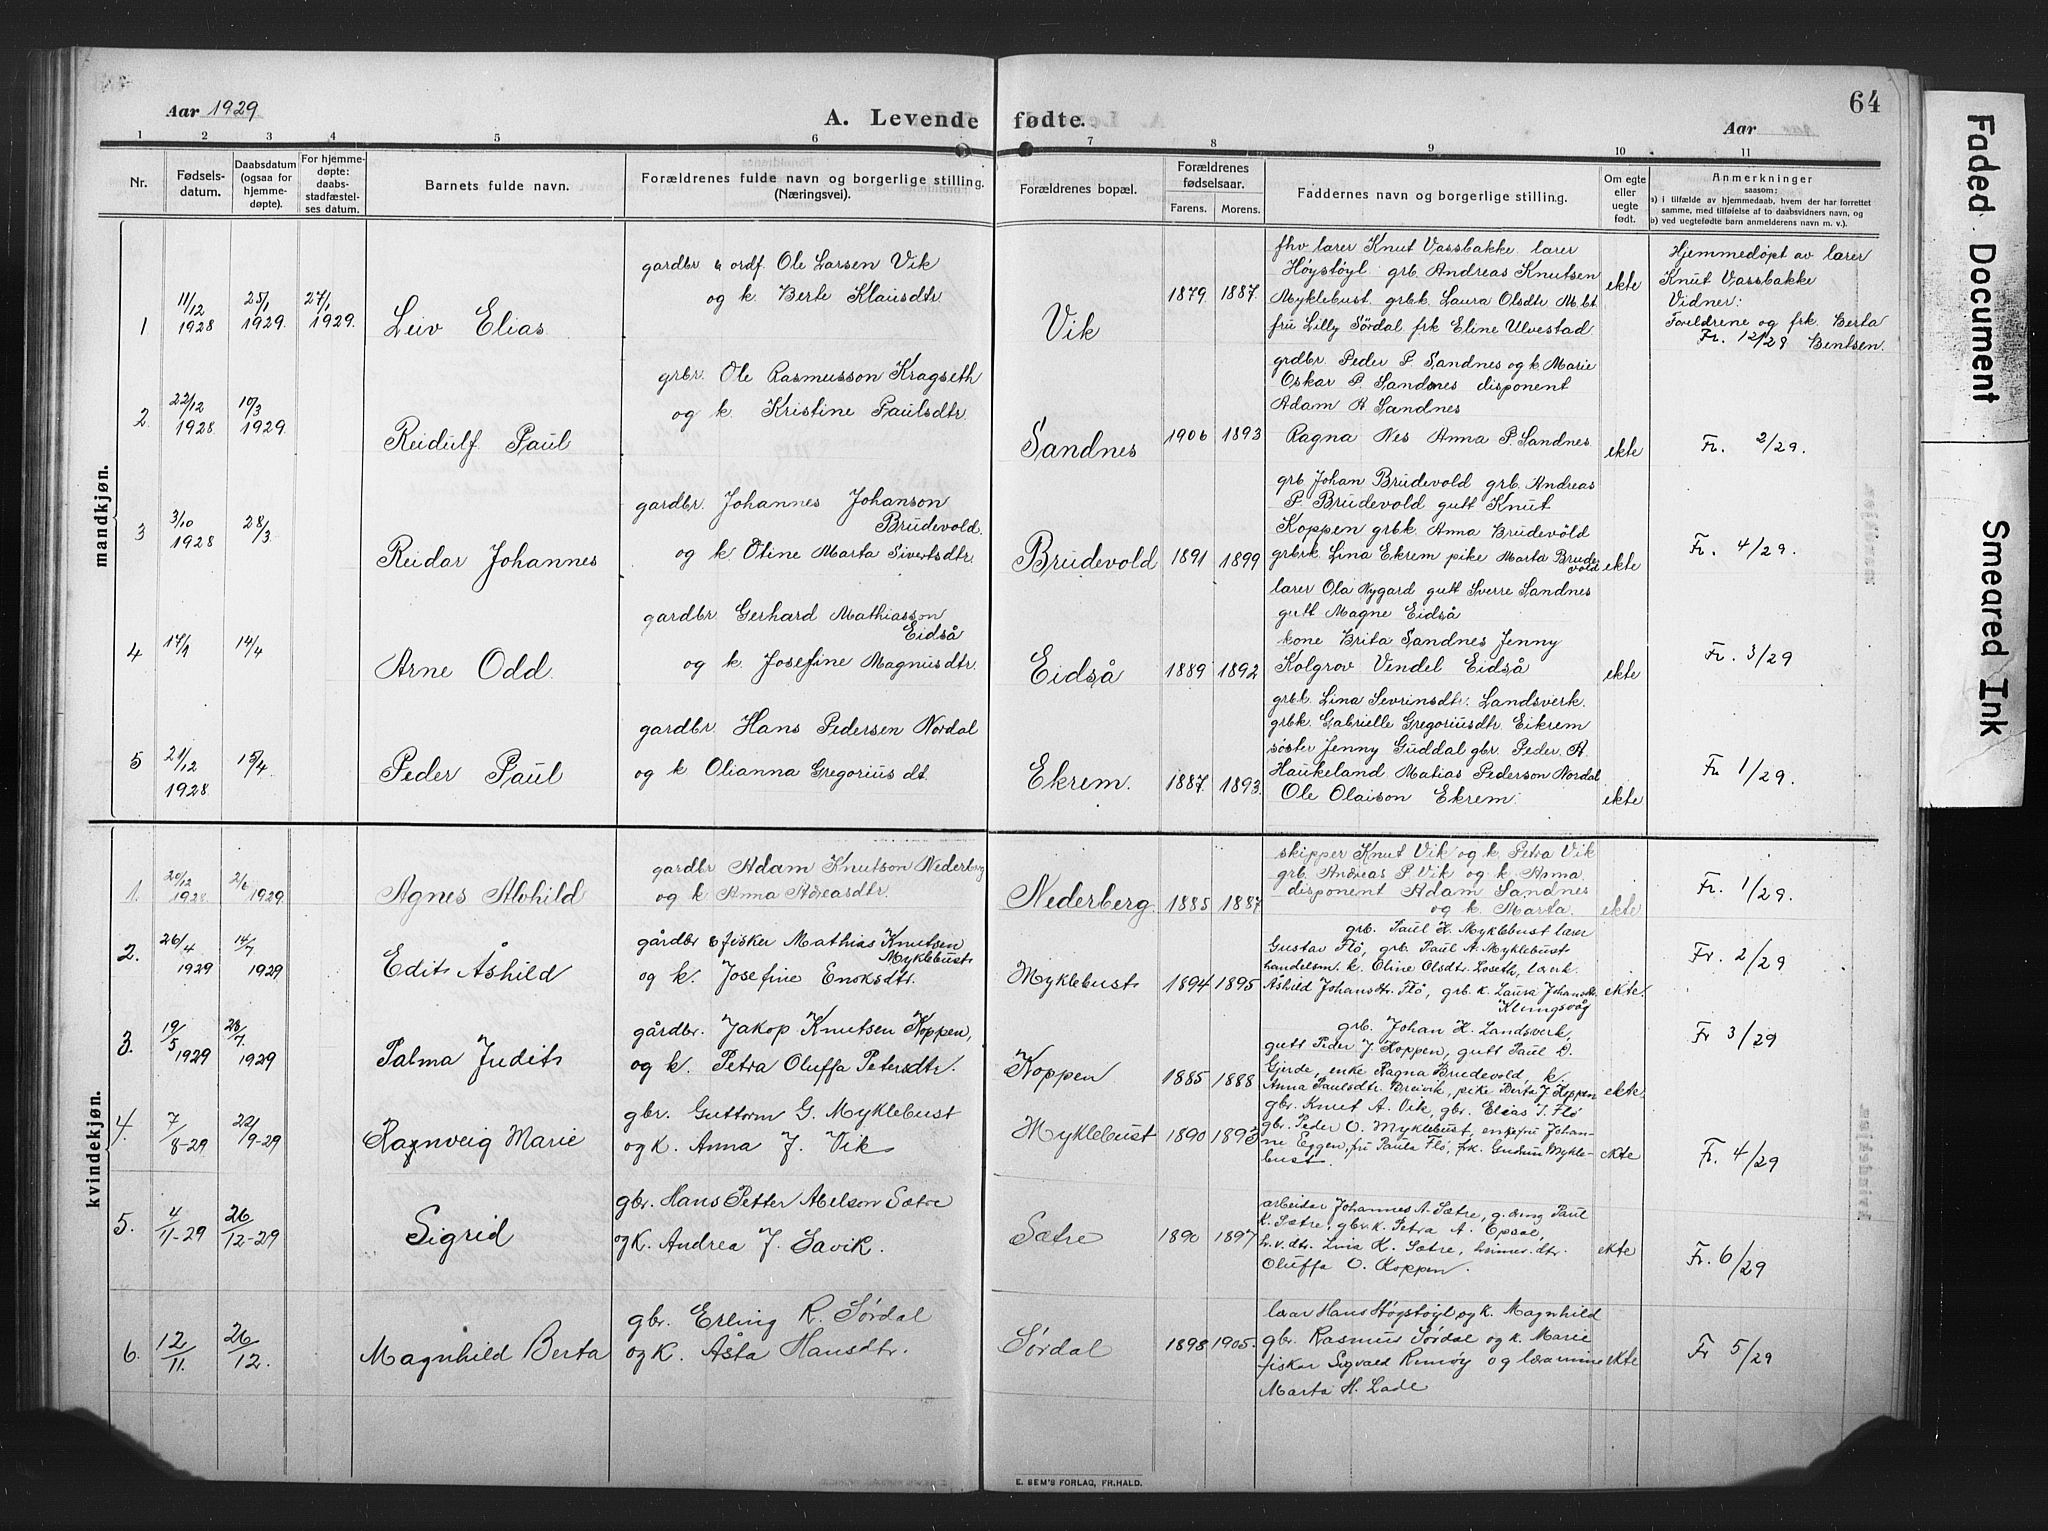 Aar 1929
A. Levende fødte.
Aar
64
1 2 3 4 5 6 7 8 9 10 11
Nr.
Fødsels-
datum.
Daabsdatum
(ogsaa for
hjemme-
døpte).
For hjemme-
døpte:
daabs-
stadfæstel-
ses datum.
Barnets fulde navn.
Forældrenes fulde navn og borgerlige stilling.
(Næringsvei).
Forældrenes bopæl.
Forældrenes
fødselsaar.
Farens. Morens.
Faddernes navn og borgerlige stilling.
Om egte
eller
uegte
født.
Anmerkninger
saasom:
a) i tilfælde av hjemmedaab, hvem der har forrettet
samme, med tilføielse af to daabsvidners navn, og
b) ved uegtefødte barn anmelderens navn m. v.).
mandkjøn.
1
11/12
1928
25/1
1929.
27/1
1929.
Leiv Elias
gardbr & ordf. Ole Larsen Vik
og k. Berte Klausdtr
Vik
1879. 1887.
fhv lærer Knut Vassbakke. lærer
Høystøyl grb. Andreas Knutsen
Myklebust. grbk. Laura Olsdtr M.bt
fru Lilly Sørdal frk Eline Ulvestad.
ekte
Hjemmedøpt av lærer
Knut Vassbakke
Vidner:
Foreldrene og frk. Berta
Fr. 12/29 Bentsen.
2.
22/12
1928.
10/3
1929.
Reidulf Paul
grbr. Ole Rasmusson Kragseth
og k. Kristine Paulsdtr.
Sandnes
1906 1893
grdbr. Peder P. Sandnes og k. Marie
Oskar P. Sandnes disponent
Adam A Sandnes
Ragna Nes Anna P. Sandnes.
ekte
Fr. 2/29.
3
3/10
1928
28/3.
Reidar Johannes
gardbr. Johannes Johanson
Brudevold.
og k. Otine Marta Sivertsdtr.
Brudevold
1891 1899
grb Johan Brudevold grb. Andreas
P. Brudevold gutt Knut
Koppen grbk. Anna Brudevold
grbrk. Lina Ekrem pike Marta Brude
vold
ekte
Fr. 4/29.
4
17/1
14/4
Arne Odd.
gardbr Gerhard Mathiasson
Eidså
og k. Josefine Magnusdtr.
Eidså
1889 1892
lærer Ola Nygard gutt Sverre Sandnes
gutt Magne Eidså
kone Brita Sandnes Jenny
Kolgrov Vendel Eidså
ekte
Fr. 3/29
5
21/12
1928.
15/4.
Peder Paul
gardbr Hans Pedersen Nordal
og k Olianna Gregorius dt.
Ekrem.
1887. 1893.
grbk. Lina Sevrinsdtr. Landsverk.
grbk. Gabrielle Gregoriusdtr. Eikrem
søster Jenny Guddal gbr. Peder A.
Haukeland Matias Pederson Nordal
Ole Olaison Ekrem.
ekte
Fr 1/29.
kvindekjøn.
1.
20/12
1928.
2/6
1929.
Agnes Alvhild
gardbr Adam Knutson Nederberg
og k Anna Adreasdtr.
Nederberg.
1885 1887
skipper Knut Vik og k. Petra Vik
grb. Andreas P. Vik og k Anna
disponent Adam Sandnes
og k. Marta.
ekte
Fr. 1/29.
2.
26/4
1929
14/7
1929
Edit Åshild
gårdbr & fisker Mathias Knutsen
Myklebust
og k. Josefine Enoksdtr.
Myklebust
1894 1895
grb. Paul K. Myklebust lærer
Gustav Flø, grb. Paul A. Myklebust
handelsm. k. Oline Olsdtr. Loseth, lærk.
Åshild Johansdtr. Flø, grb. k. Laura Johansdtr
Klungsvåg
ekte.
Fr. 2/29
3.
19/5
1929
28/7
1929
Palma Judit
gårdbr. Jakop Knutsen Koppen,
og k. Petra Oluffa Petersdtr.
Koppen
1885 1888
grb. Johan K. Landsverk,
gutt Peder J. Koppen, gutt Paul D.
Gjerde, enke Ragna Brudevold, k.
Anna Paulsdtr. Breivik, pike Berta J. Koppen
ekte.
Fr 3/29
4.
7/8-29
22/9-29
Ragnveig Marie
gbr. Guttorm G. Myklebust
og k. Anna J. Vik
Myklebust
1890 1893
gbr. Knut A. Vik, gbr. Elias I. Flø
gbr. Peder O. Myklebust, enkefru Johan-
ne Eggen, fru Paula Flø, frk. Gudrun Mykle-
bust.
ekte
Fr. 4/29
5.
4/11-29
26/12-29
Sigrid
gbr. Hans Petter Abelson Sætre
og k. Andrea J. Savik.
Sætre
1890 1897
arbeidar Johannes A. Sætre, g. dreng Paul
K. Sætre, gbr. k. Petra A. Opsal,
hr. v. dtr. Lina K. Sætre, heimev. dtr.
Oluffa O. Koppen.
ekte
Fr. 6/29
6.
12/11.
26/12.
Magnhild Berta
gbr. Erling R. Sørdal
og k. Åsta Hansdtr.
Sørdal
1898 1905.
lær Hans Høgstøyl og k. Magnhild
gbr. Rasmus Sørdal og k. Marie
fiskar Sigvald Remøy og lærarinne
Marta H. Lade
ekte
Fr 5/29
E. SEM'S FORLAG, FR.HALD.
Faded Document
Smeared Ink